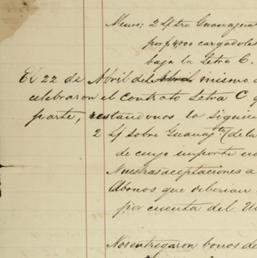 Menos; 2 Lf tro Guanajua
por $ 4000 cargadoles
bajo la Letra C.
El 22 de Abril del mismo a
celebraron el Contrato Letra C y
parte, restandonos la siguien
2 Lf sobre Guanajto (de la
de cuyo importe no
Nuestras aceptaciones a
Abonos que debieran
por cuenta del
Nos entregaron bonos de